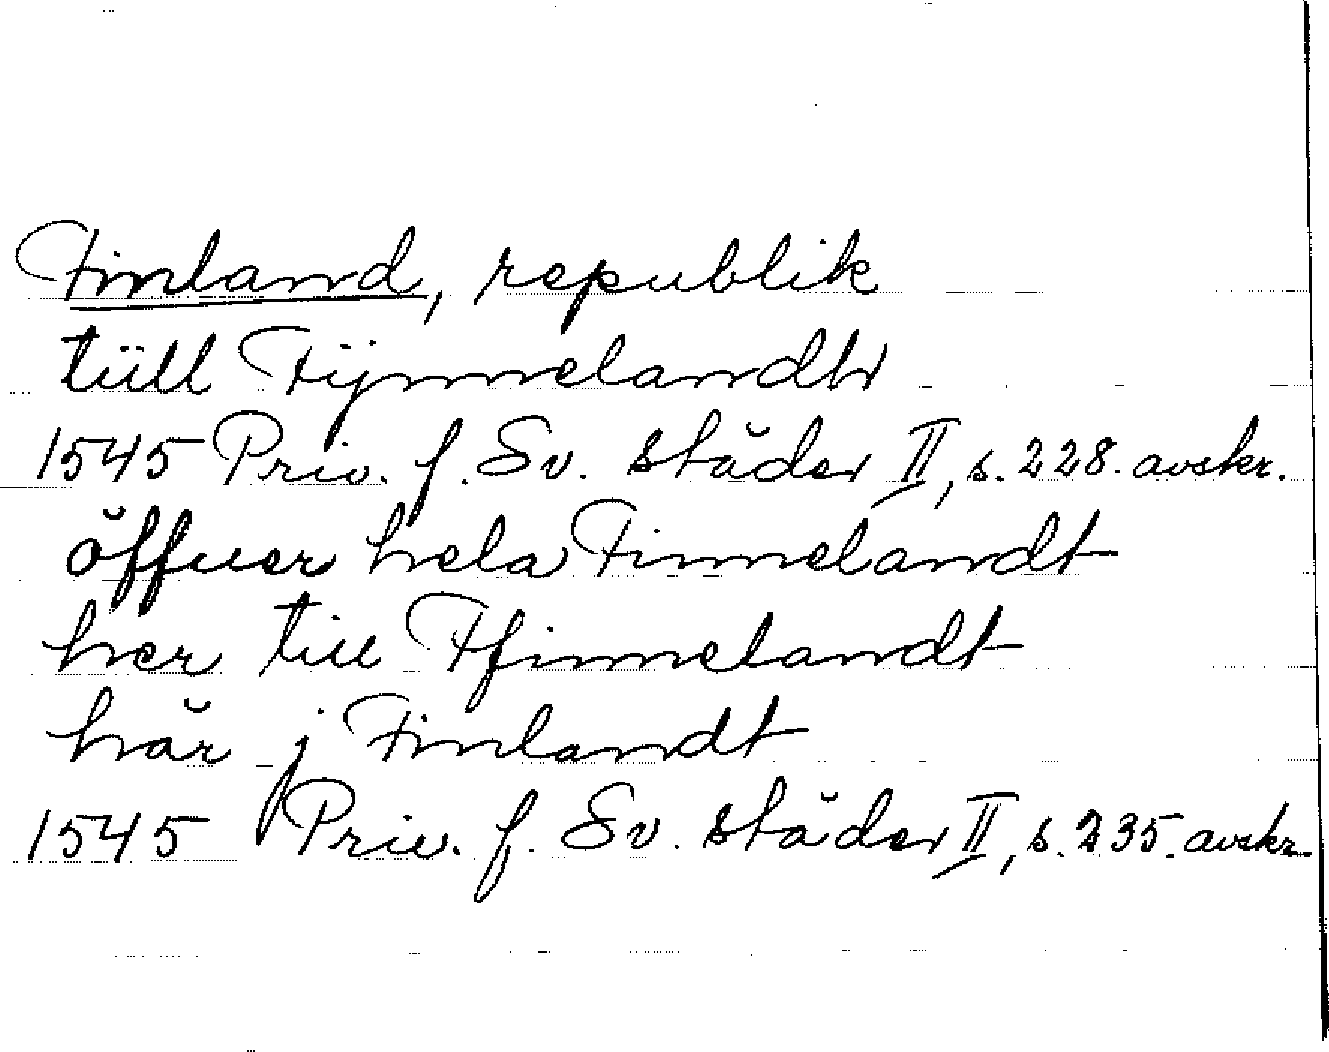 Finland, republik
tiill Fijnnelandh
1545 Priv. f. Sv. städer II, s. 228. avskr.
öffuer hela Finnelandt
her till Ffinnelandt
här j Finlandt
1545 Priv. f. Sv. städer II, s. 235. avskr.